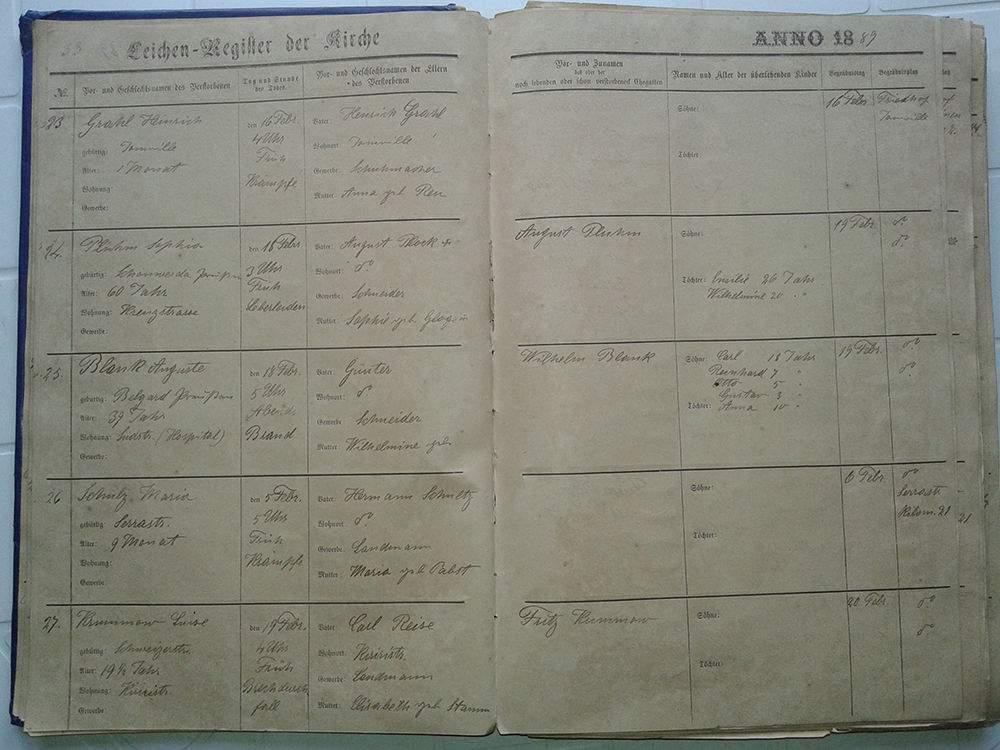 Leichen-Register der Kirche
ANNO 18 89
№. Vor- und Geschlechtsnamen des Verstorbenen
Tag und Stunde des Todes.
Vor- und Geschlechtsnamen der Eltern des Verstorbenen
Vor- und Zunamen des oder der noch lebenden oder schon verstorbenen Ehegatten
Namen und Alter der überlebenden Kinder
Begräbnißtag
Begräbnißplan
23 Grahl Heinrich den 16 Febr. Vater: Heinrich Grahl Söhne: 16 Febr. Friedhof
gebürtig: Joinville 4 Uhr Wohnort: Joinville Joinville
Alter: 1 Monat Früh Gewerbe: Schuhmacher Töchter:
Wohnung: Krämpfe Mutter: Anna geb Reu
Gewerbe:
24. Sophia den 16 Febr Vater: August August Söhne: 19 Febr. do
gebürtig: 3 Uhr Wohnort: do do
Alter: 60 Jahr Früh Gewerbe: Schneider Töchter: Emilie 26 Jahr
Wohnung: Kreuzstrasse Leberleiden Mutter: Sophie geb Wilhelmine 20 "
Gewerbe:
25. Blank Auguste den 18 Febr. Vater: Günter Wilhelm Blank Söhne: Carl 18 Jahr 19 Febr. do
gebürtig: Belgard Preußen 5 Uhr Wohnort: do Reinhard 7 " do
Alter: 39 Jahr Abends Gewerbe: Schneider Otto 5 "
Gustav 3 "
Wohnung: (Hospital) Brand Mutter: Wilhelmine geb Töchter: Anna 10 "
Gewerbe:
26 Schulz Maria den 5 Febr. Vater: Hermann Schultz Söhne: 6 Febr. do
gebürtig: Serrastr. 5 Uhr Wohnort: do Serrastr
Alter: 9 Monat Früh Gewerbe: Landmann Töchter: Kilom. 21
Wohnung: Krämpfe Mutter: Maria geb Pabst
Gewerbe:
27. Krummow Luise den 19 Febr. Vater: Carl Reise Fritz Kummow Söhne: 20 Febr. do
gebürtig: Schweizerstr. 4 Uhr Wohnort: do
Alter: 19½ Jahr Früh Gewerbe: Landmann Töchter:
Wohnung: Brechdurch Mutter: Elisabeth geb Stamm
Gewerbe: fall